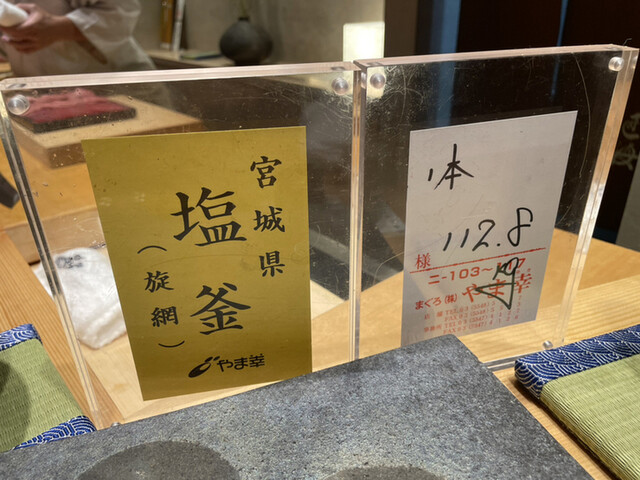 宮城県
塩釜
（旋網）
やま幸
本
112.8
様
ニ-103~
まぐろ(株) やま幸